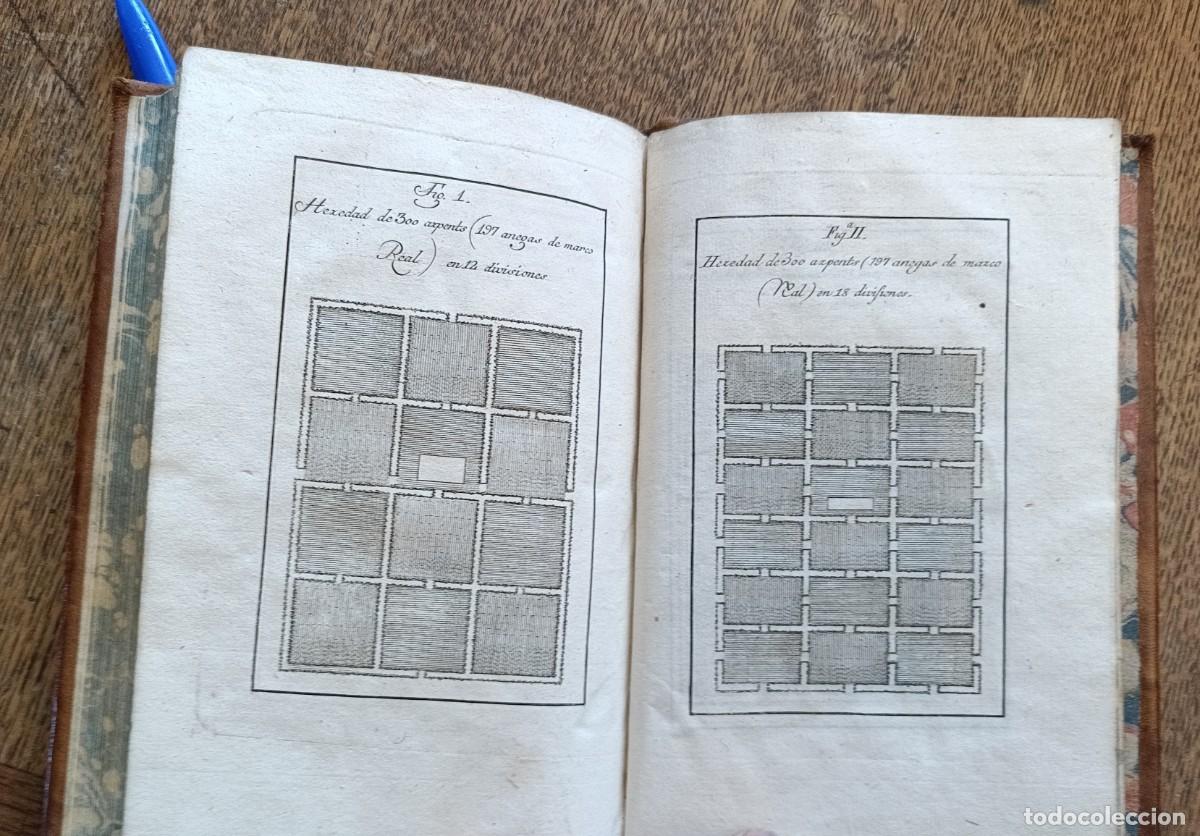 Fig. 1.
Heredad de 300 arpents (197 anegas de marco
Real) en 12 divisiones
Fig.ª II.
Heredad de 300 arpents (197 anegas de marco
(Real) en 18 divisiones.
todocoleccion